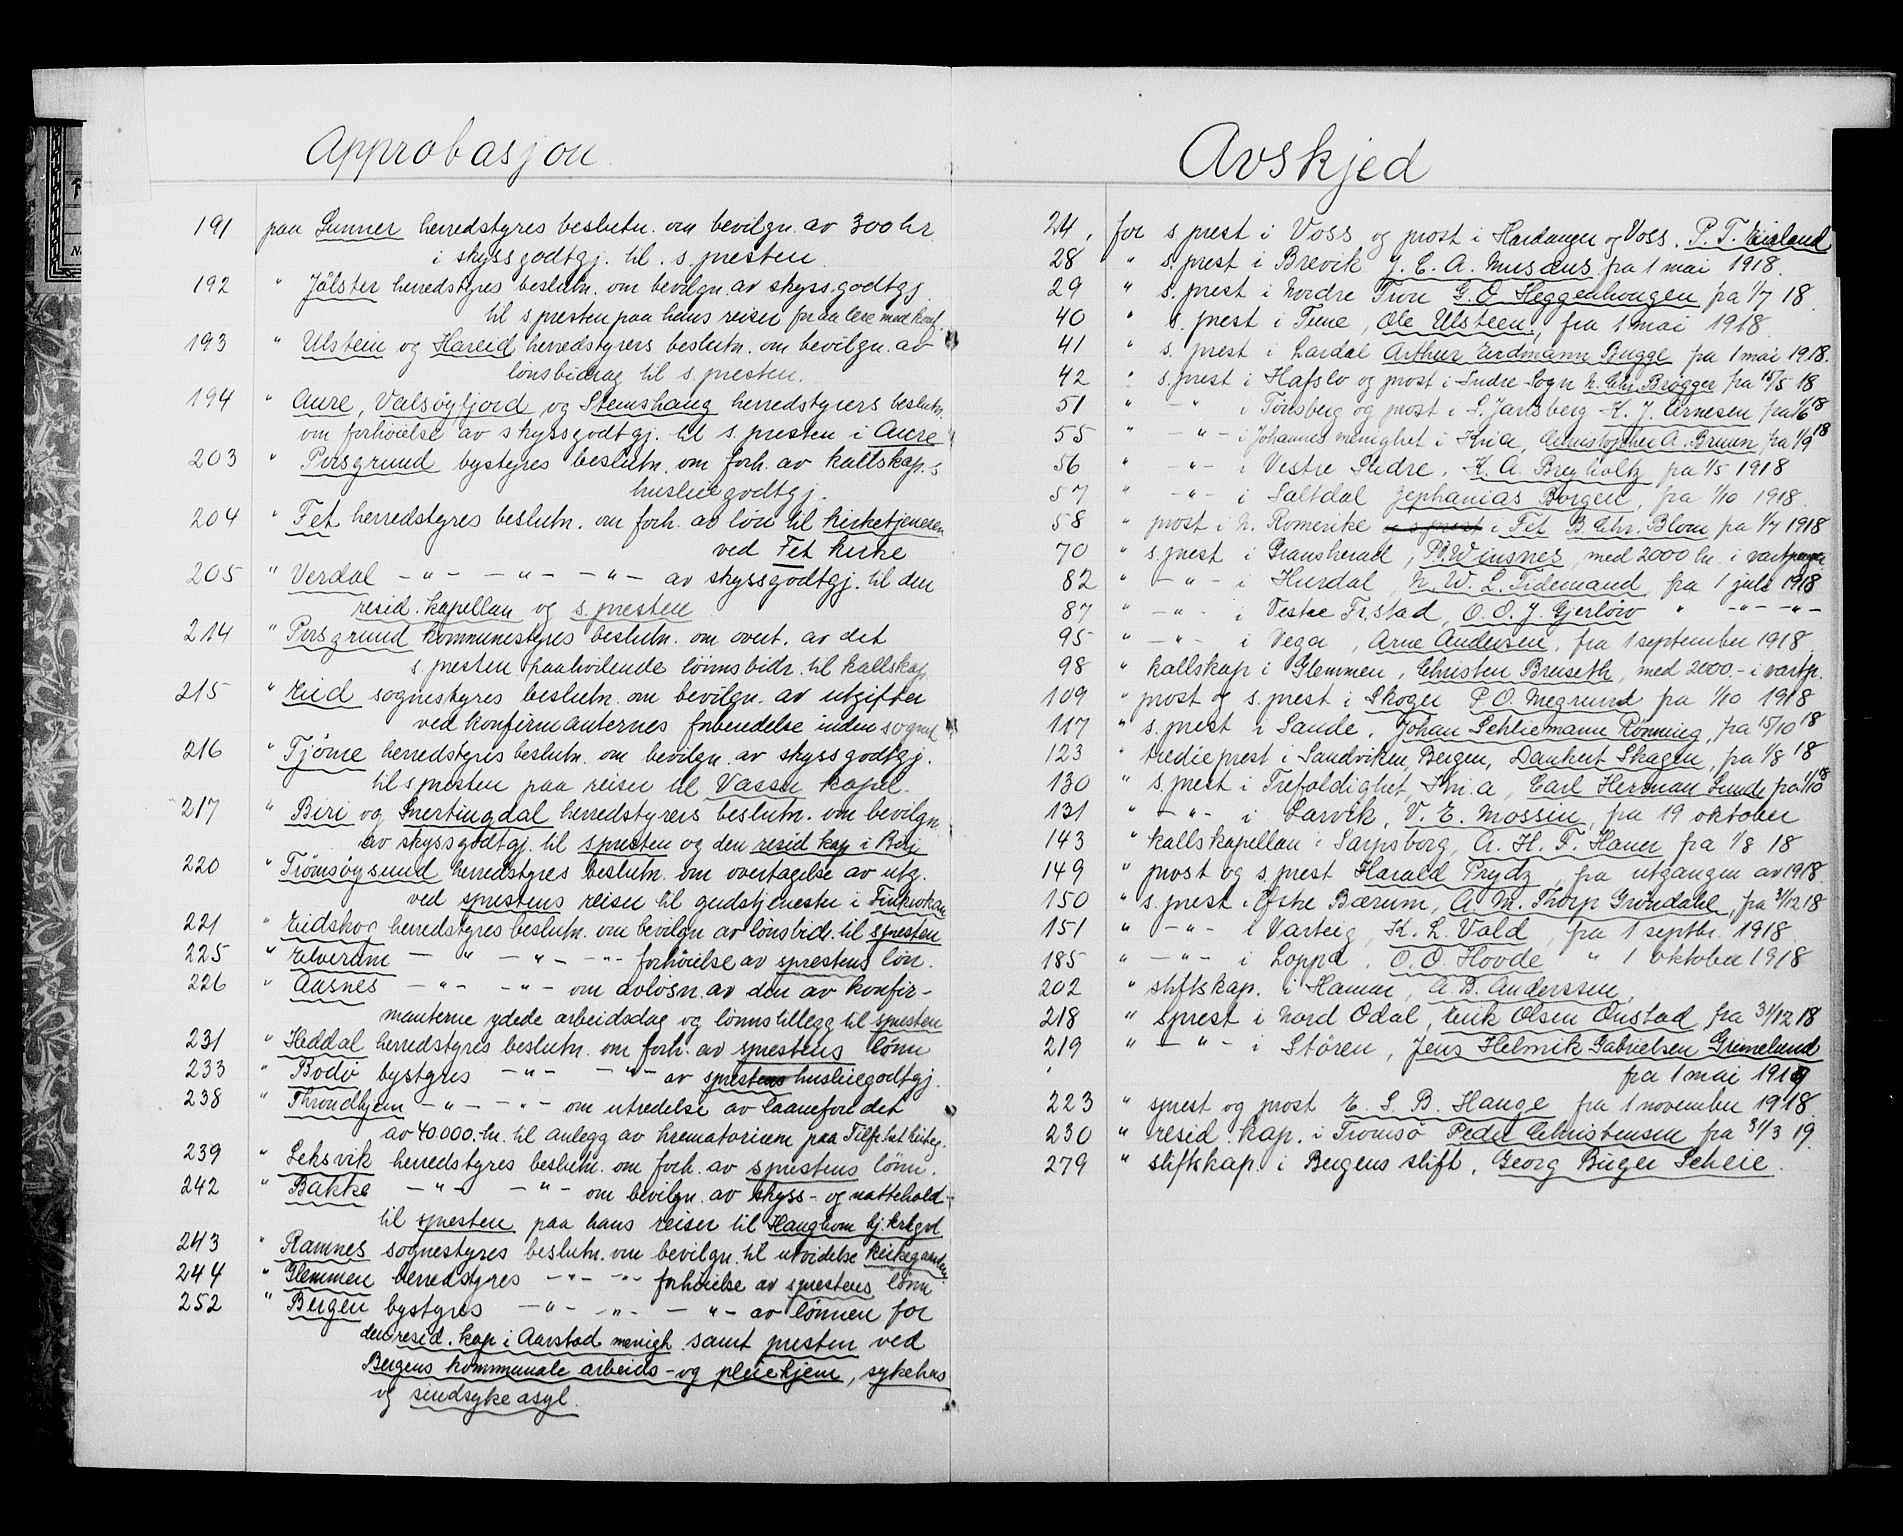 Approbasjon
191 paa Lunner herredstyres beslutn. om bevilgn. av 300 kr
i skyssgodtgj. til s.presten
192 " Jølster herredstyres beslutn. om bevilgn. av skyssgodtgj
til s presten paa hans reiser for aa lese med konf.
193 " Ulstein og Hareid herredstyrers beslutn. om bevilgn. av
lønsbidrag til s.presten.
194 " Aure, Valsøyfjord og Stemshaug herredstyrers beslutn.
om forhøielse av skyssgodtgj. til s.presten i Aure
203 " Porsgrund bystyres beslutn. om forh. av kallskap.s
husleiegodtgj.
204 " Fet herredstyres beslutn. om forh. av løn til kirketjeneren
ved Fet kirke
205 " Verdal — " — — " — — " — av skyssgodtgj. til den
resid. kapellan og s.presten
214 " Porsgrund kommunestyres beslutn. om overt. av det
s.presten paahvilende lønnsbidr. til kallskap.
215 " Eid sognestyres beslutn. om bevilgn. av utgifter
ved konfirmanternes forberedelse inden sognet
216 " Tjøme herredstyres beslutn. om bevilgn. av skyssgodtgj.
til spresten paa reiser til Vassø kapel.
217 " Biri og Snertingdal herredstyrers beslutn. om bevilgn.
av skyssgodtgj. til spresten og den resid kap i Biri
220 " Tromsøysund herredstyres beslutn. om overtagelse av utg.
ved sprestens reiser til gudstjeneste i
221 " Eidskog herredstyres beslutn. om bevilgn av lønsbidr. til spresten
225 " Elverum — " — " — — " — forhøielse av sprestens løn.
226 " Aasnes — " — — " — om avløsn. av den av konfir-
manterne ydede arbeidsdag og lønnstillegg til spresten
231 " Heddal herredstyres beslutn. om forh. av sprestens lønn
233 " Bodø bystyres — " — — " — av sprestens husleiegodtgj.
238 " Throndhjem — " — — " — om utredelse av laanefondet
av 40.000.- kr. til anlegg av krematorium paa Tilfredshet kirkeg.
239 " Leksvik herredstyres beslutn. om forh. av sprestens lønn.
242 " Bakke — " — — " — om bevilgn. av skyss- og nattehold-
til spresten paa hans reiser til Haughom hj. kirkgrd
243 " Ramnes sognestyres beslutn. om bevilgn. til utvidelse kirkegaarden
244 " Glemmen herredstyres — " — — " — forhøielse av sprestens lønn
252 " Bergen bystyres — " — — " — — " — av lønnen for
den resid. kap i Aarstad menigh. samt presten ved
Bergens kommunale arbeids- og pleiehjem, sykehus
og sindsykeasyl.
Avskjed
24. for s prest i Voss og prost i Hardanger og Voss. P. T.
28 " s. prest i Brevik J. C. A. Musæus fra 1 mai 1918.
29 " s. prest i Nordre Fron G. O. Heggenhougen fra 1/7 18.
40 " s. prest i Tune, Ole Ulsteen, fra 1 mai 1918
41 " s. prest i Lardal Arthur Erdmann Bugge fra 1 mai 1918.
42 " s. prest i Hafslo og prost i Indre Sogn N. Chr. Brøgger fra 15/5 18
51 " — " — i Tønsberg og prost i S. Jarlsberg K. J. Arnesen fra 1/6 18
55 " — " — i Johannes menighet i Kria, Christopher A. Bruun fra 1/9 18
56 " — " — i Vestre Slidre, K. A. Breyholtz fra 1/5 1918
57 " — " — i Saltdal Zephanias Borgen, fra 1/10 1918.
58 " prost i N. Romerike i Fet B. Chr. Blom fra 1/7 1918
70 " s. prest i Gransherad, P. Winsnes, med 2000 kr. i vartpenger
82 " — " — i Hurdal, N. W. L. Tidemand, fra 1 juli 1918
87 " — " — i Vestre Fr.stad, O. O. J. Gjerløw " — " — " —
95 " — " — i Vega, Arne Andersen, fra 1 september 1918.
98 " kallskap i Glemmen, Christen Bruseth, med 2000.- i vartp.
109 " prost og s. prest i Skoger P. O. Megrund fra 1/10 1918
117 " s. prest i Sande, Johan Schliemann Rønning, fra 15/10 18
123 " tredieprest i Sandviken, Bergen, Dankert Skagen, fra 1/8 18
130 " s. prest i Trefoldighet, Kri.a, Carl Herman Lunde fra 1/10 18
131 " — " — i Larvik, V. E. Mossin, fra 19 oktober
143 " kallskapellan i Sarpsborg, A. H. F. Hauer fra 1/8 18
149 " prost og s. prest Harald Prydz, fra utgangen av 1918
150 " s. prest i Østre Bærum, A. M. Thorp Grøndahl, fra 31/12 18
151 " — " — i Varteig, K. L. Vold, fra 1 septbr. 1918
185 " — " — i Loppa, O. O. Hovde " 1 oktober 1918
202 " stiftskap. i Hamar, A. B. Anderssen,
218 " sprest i Nord Odal, Eirik Olsen Onstad fra 31/12 18
219 " — " — i Støren, Jens Helmik Gabrielsen Grimelund
fra 1 mai 1919
223 " sprest og prost E. S. B. Hauge fra 1 november 1918.
230 " resid. kap. i Tromsø Peder Christensen fra 31/3 19.
279 " stiftskap. i Bergens stift, Georg Burger Scheie.